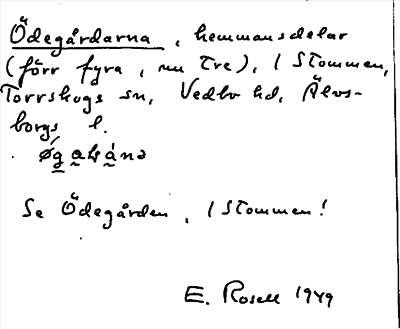 Ödegårdarna, hemmansdelar
(förr fyra, nu tre), / Stommen,
Torrskogs sn, Vedbo hd, Älvs-
borgs l.
Se Ödegården, / Stommen!
E. Rosell 1949